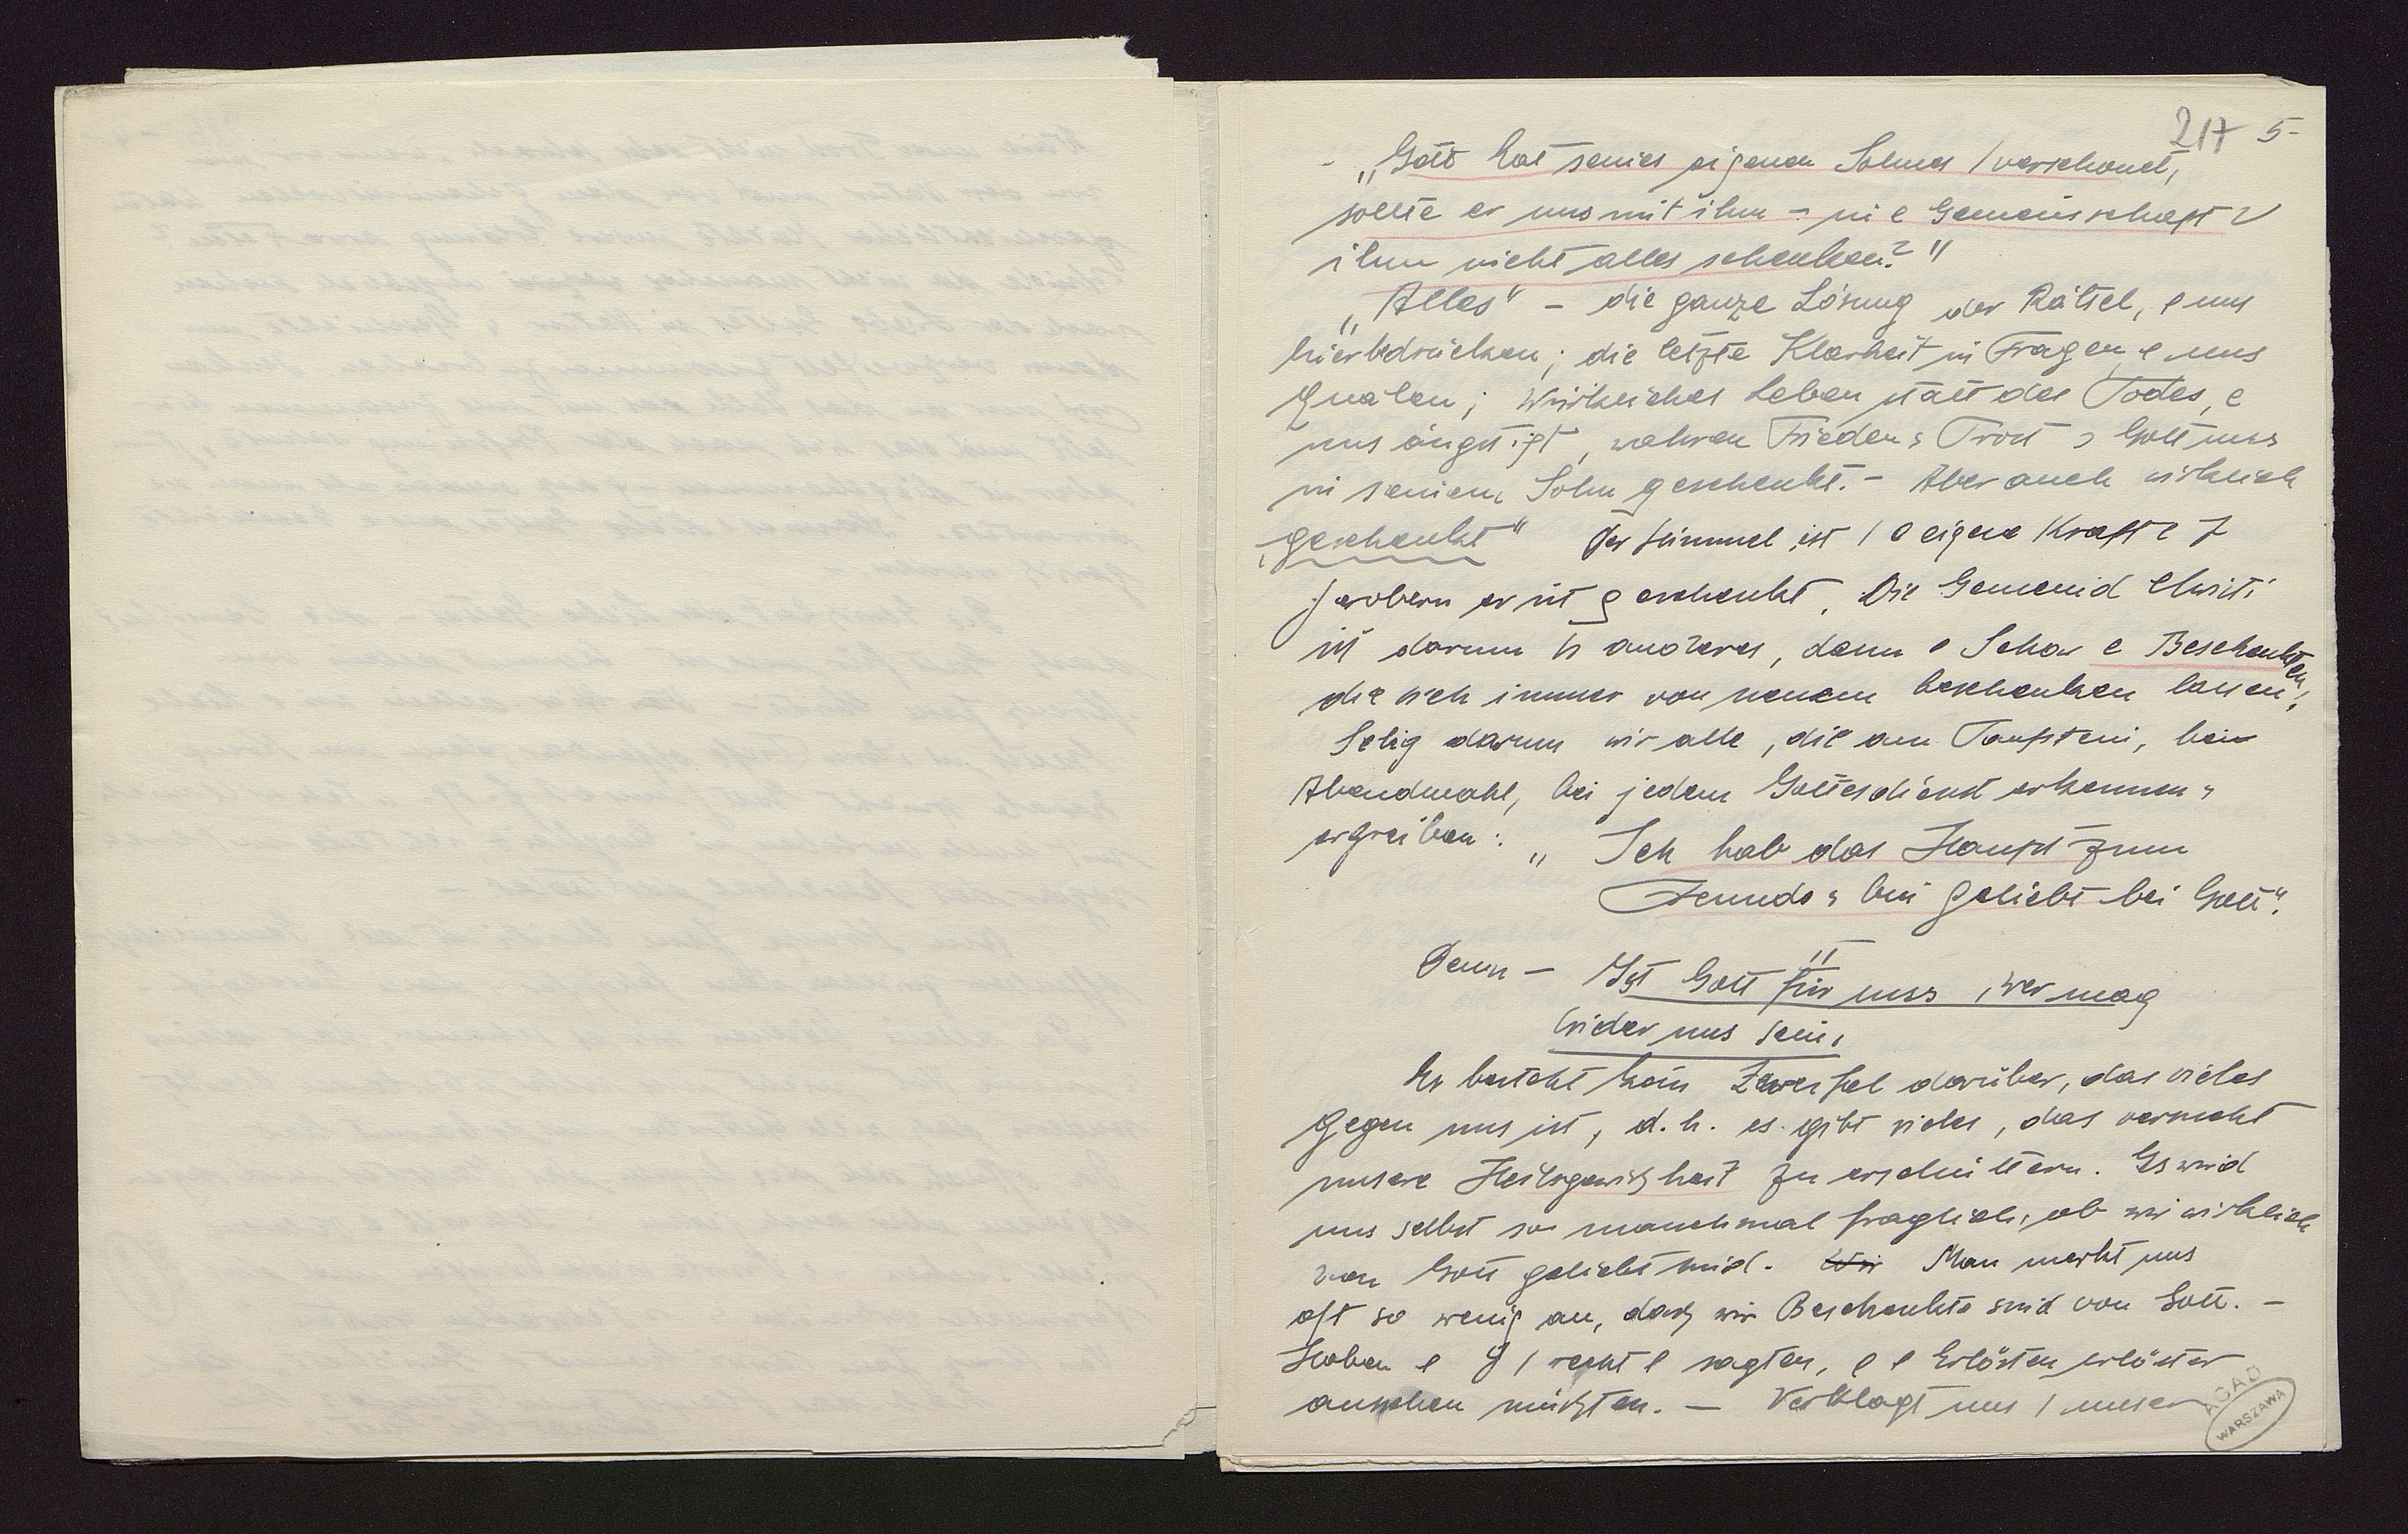 217 5-
- „Gott hat seines eigenen Sohnes / verschonet,
sollte er uns mit ihm - in e Gemeinschaft
ihm nicht alles schenken?"
„Alles" - die ganze Lösung der Rätsel, e uns
hier bedrücken; die letzte Klarheit in Fragen, e uns
Quälen; Wirkliches Leben statt des Todes, e
uns ängstigt, wahren Frieden Trost Gott uns
in seinem Sohn geschenkt. - Aber auch wirklich
„geschenkt" Der Himmel ist / e eigene Kraft
erobern er ist geschenkt. Die Gemeind Christi
ist darum anderes, denn e Schar e Beschenkten,
die sich immer von neuem beschenken lassen,
Selig darum wir alle, die am Taufstein, beim
Abendmahl, bei jedem Gottesdienst erkennen
ergreifen: „Ich hab das Haupt zum
Freunde bin geliebt bei Gott".
Denn - Ist Gott für uns, wer mag
wider uns sein.
Es besteht kein Zweifel darüber, das vieles
gegen uns ist, d. h. es gibt vieles, das vermcht
unsere Heilsgewißheit zu erschüttern. Es wird
uns selbst so manchmal fraglich, ob wir wirklich
von Gott geliebt sind. Wir Man merkt uns
oft so wenig an, daß wir Beschenkte sind von Gott. -
Haben e / recht sagten, e e Erlösten erlöster
aussehen müßten. - Verklagt uns / unser
AGAD
WARSZAWA